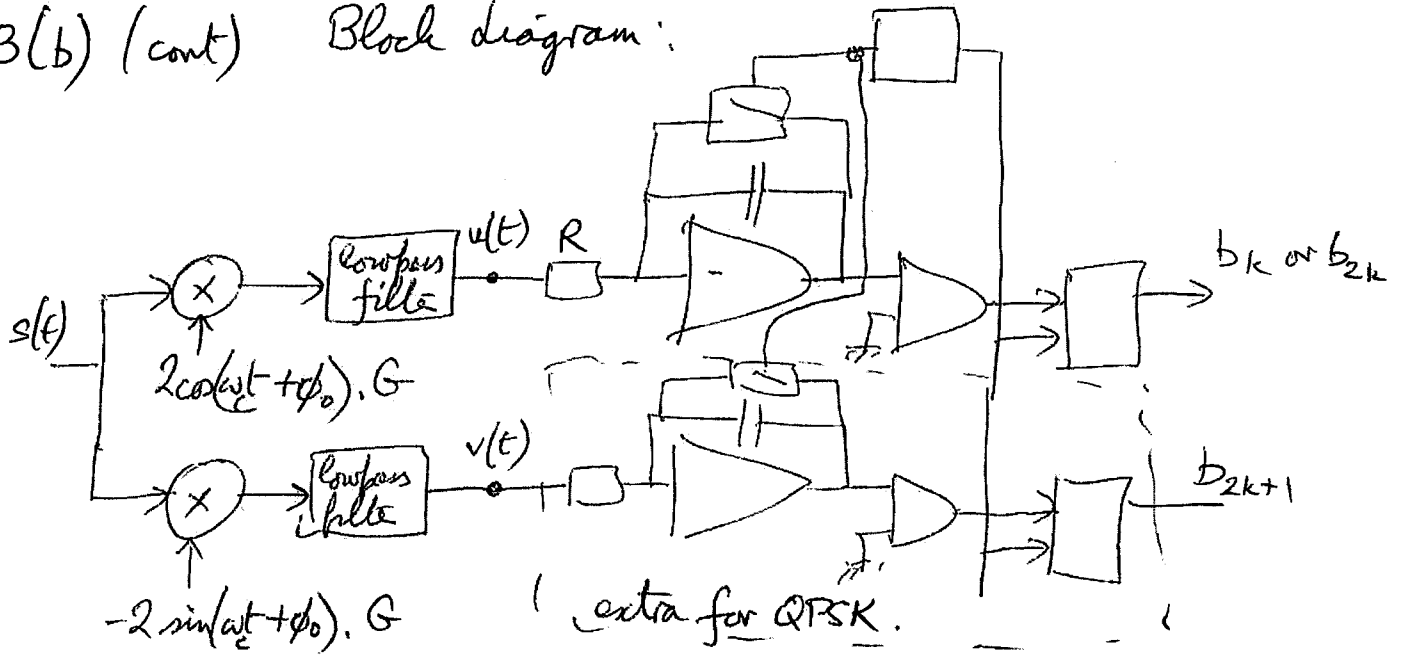 3(b) (cont) Block diagram:
u(t)
R
lowpass
filte
b_k or b_{2k}
s(t)
×
-
2cos(ω_c t + φ_0). G
v(t)
lowpass
filte
×
b_{2k+1}
-2 sin(ω_c t + φ_0). G
extra for QPSK.